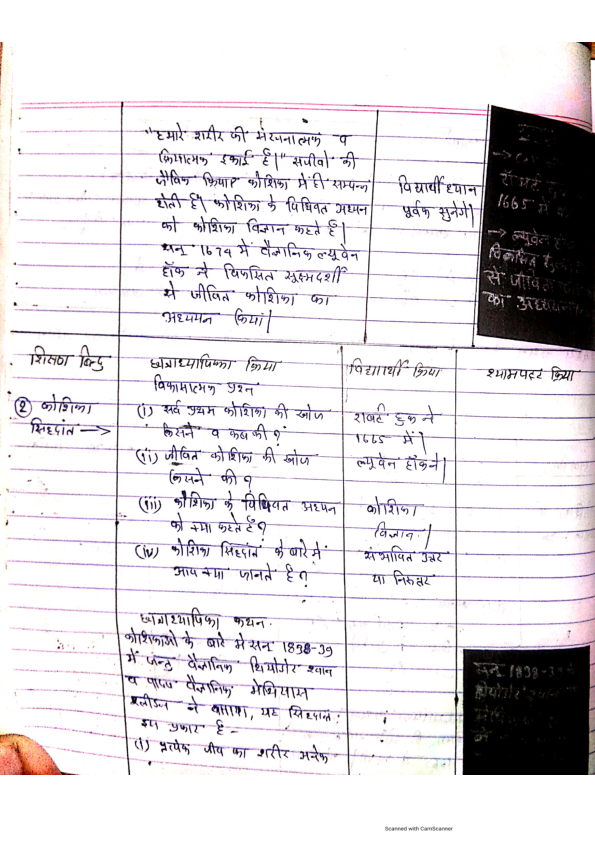 "हमारे शरीर की संरचनात्मक व
क्रियात्मक इकाई है।" सजीवों की
जैविक क्रियाएं कोशिका में ही सम्पन्न
होती है। कोशिका के विधिवत अध्ययन
को कोशिका विज्ञान कहते है।
सन् 1674 में वैज्ञानिक ल्यूवेन
हॉक ने विकसित सूक्ष्मदर्शी
से जीवित कोशिका का
अध्ययन किया।
विद्यार्थी ध्यान
पूर्वक सुनेगे।
1665 में
→ ल्यूवेन
विकसित
से जीवित
का अध्ययन
शिक्षण बिन्दु
छात्राध्यापिका क्रिया
विद्यार्थी क्रिया
श्यामपट्ट क्रिया
② कोशिका
सिद्दांत →
विकासात्मक प्रश्न
(i) सर्व प्रथम कोशिका की खोज
किसने व कब की ?
(ii) जीवित कोशिका की खोज
किसने की ?
(iii) कोशिका के विधिवत अध्ययन
को क्या कहते है ?
(iv) कोशिका सिद्दांत के बारे में
आप क्या जानते है ?
राबर्ट हुक ने
1665 में।
ल्यूवेन हॉकने।
कोशिका
विज्ञान।
संभावित उत्तर
या निरुत्तर
छात्राध्यापिका कथन
कोशिकाओं के बारे मे सन् 1838-39
में जन्तु वैज्ञानिक थियोडोर श्वान
व पादप वैज्ञानिक मेथियास
श्लीडन ने बताया, यह सिद्दान्त
इस प्रकार है -
(i) प्रत्येक जीव का शरीर अनेक
सन् 1838-39
Scanned with CamScanner